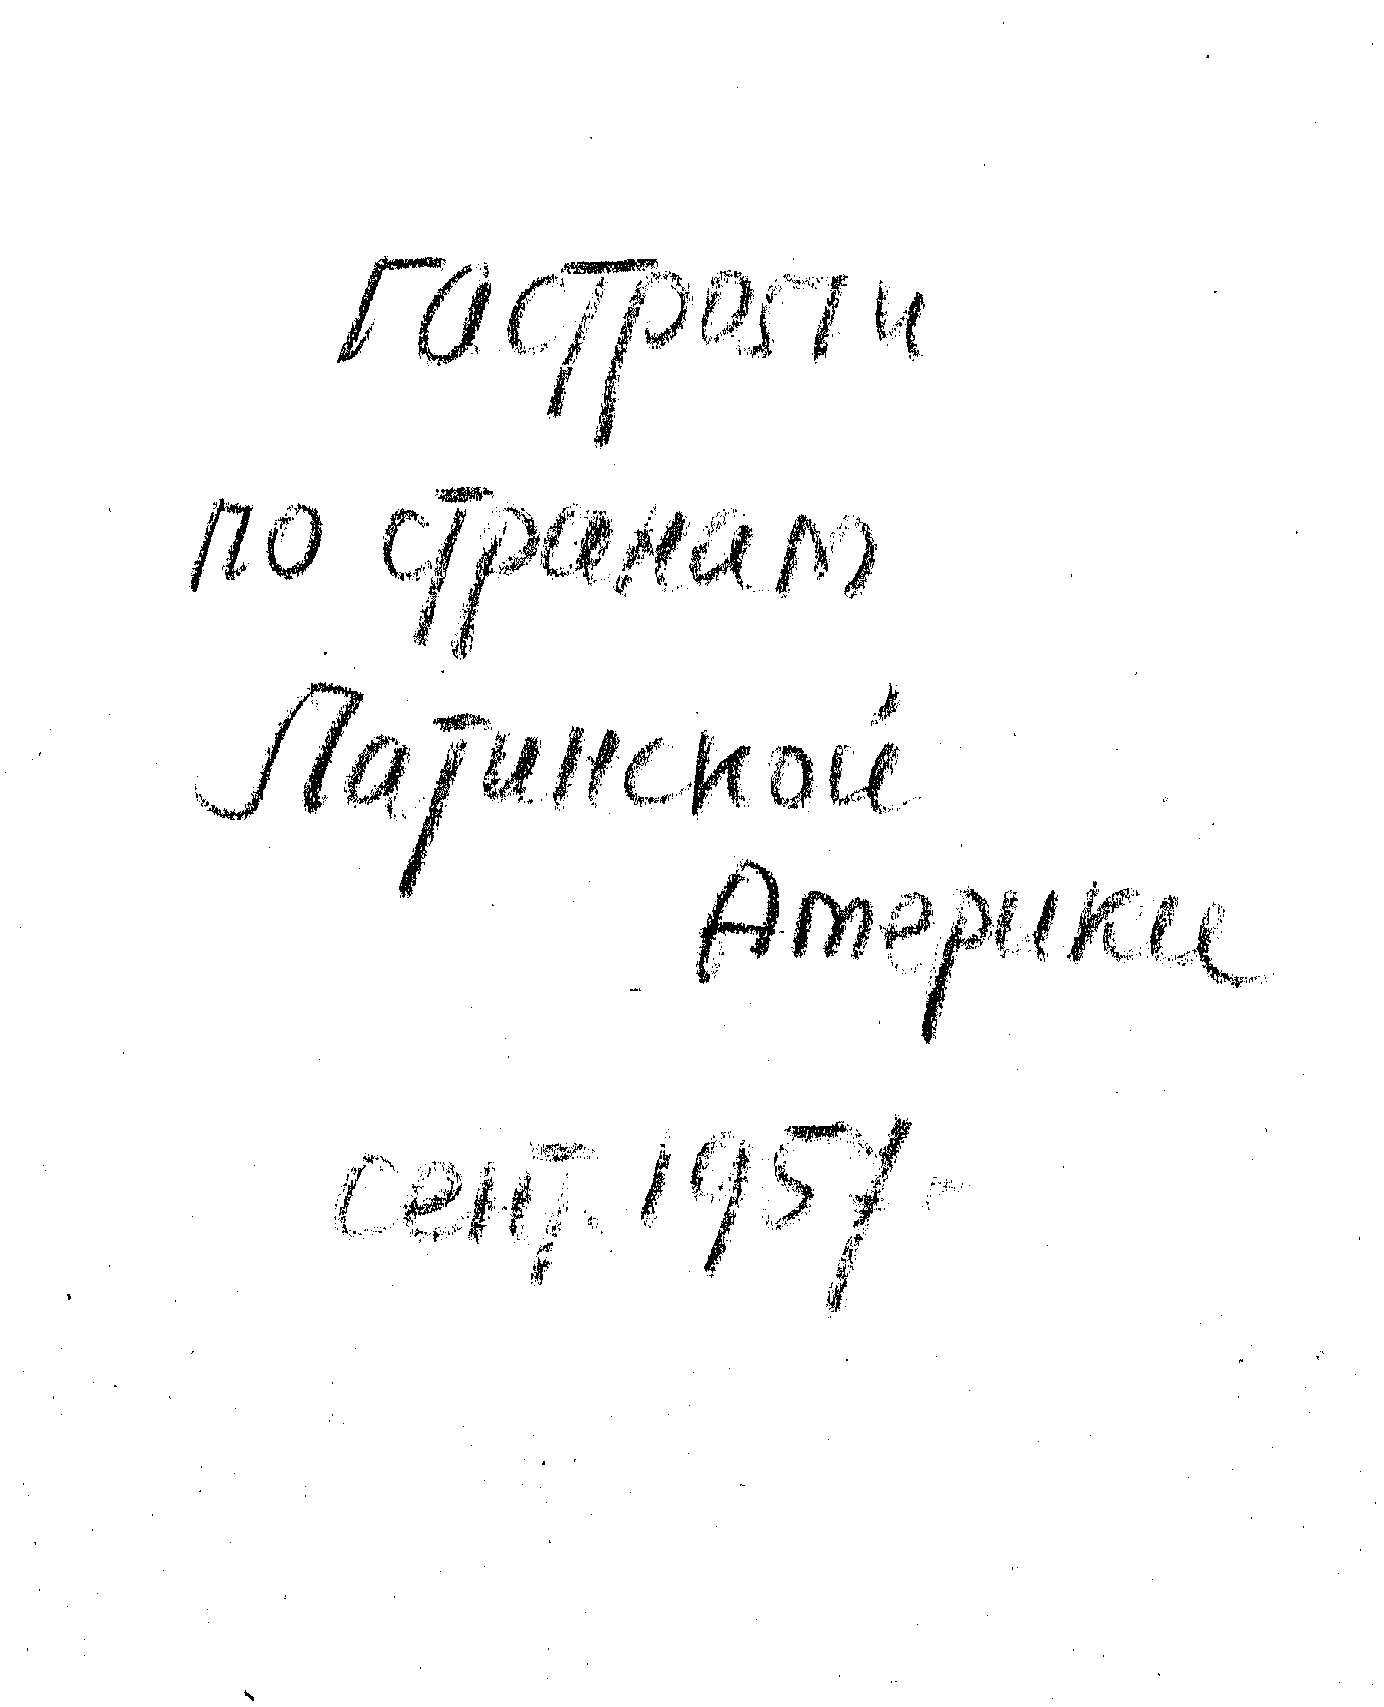 Гастроли
по странам
Латинской
Америки
сент. 1957 г